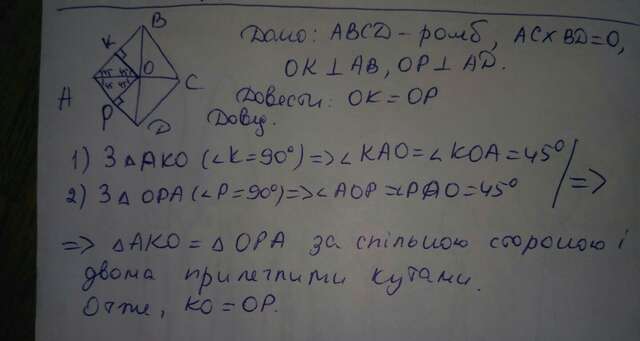 B
K
O
A
C
P
D
Дано: ABCD - ромб, AC×BD=O,
OK ⊥ AB, OP ⊥ AD.
Довести: OK = OP
Довед.
1) З △AKO (∠K=90°) => ∠KAO = ∠KOA = 45°
2) З △ OPA (∠P=90°) => ∠AOP = ∠PAO = 45° / =>
=> △AKO = △OPA за спільною стороною і
двома прилеглими кутами.
Отже, KO = OP.